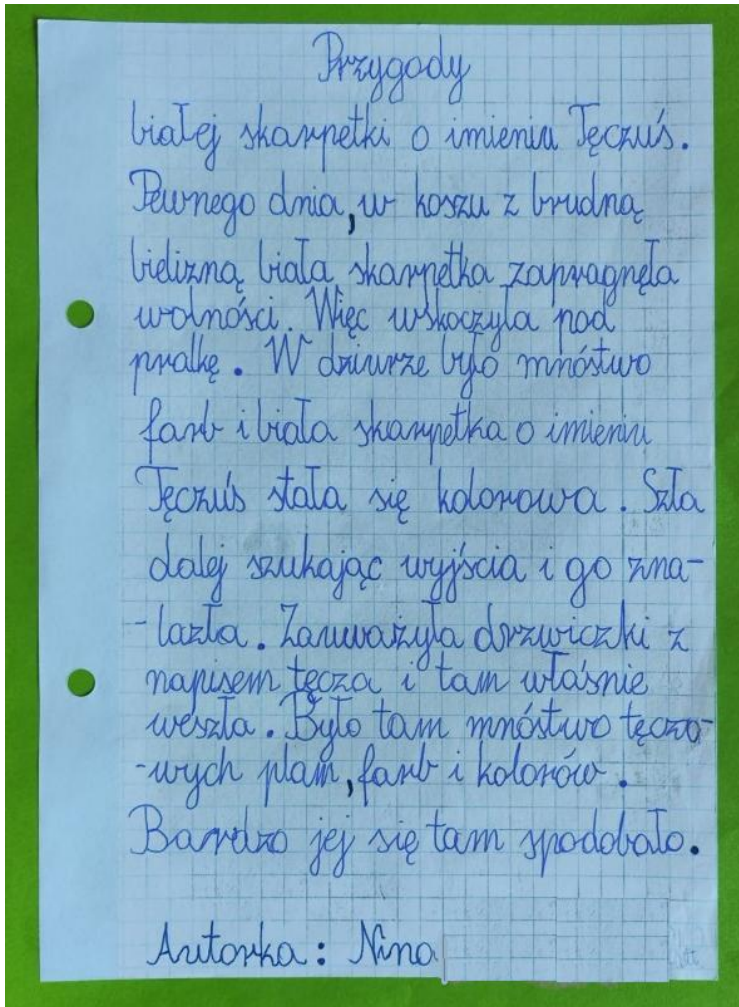 Przygody
białej skarpetki o imieniu Tęczuś.
Pewnego dnia, w koszu z brudną
bielizną biała skarpetka zapragnęła
wolności. Więc wskoczyła pod
pralkę. W dziurze było mnóstwo
farb i biała skarpetka o imieniu
Tęczuś stała się kolorowa. Szła
dalej szukając wyjścia i go zna-
-lazła. Zauważyła drzwiczki z
napisem tęcza i tam właśnie
weszła. Było tam mnóstwo tęczo-
-wych plam, farb i kolorów.
Bardzo jej się tam spodobało.
Autorka: Nina